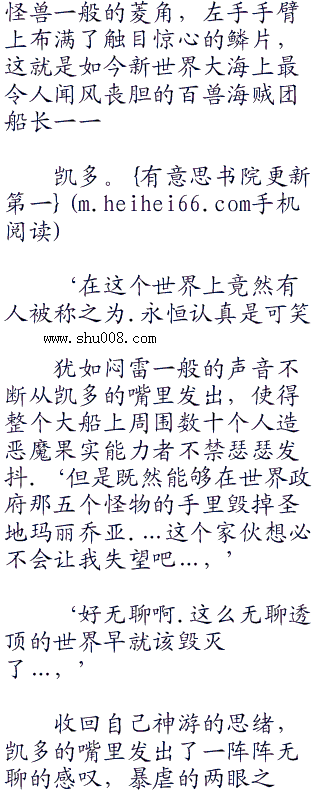 怪兽一般的菱角，左手手臂
上布满了触目惊心的鳞片，
这就是如今新世界大海上最
令人闻风丧胆的百兽海贼团
船长一一
凯多。{有意思书院更新
第一}(m.heihei66.com手机
阅读)
‘在这个世界上竟然有
人被称之为.永恒认真是可笑
www.shu008.com
犹如闷雷一般的声音不
断从凯多的嘴里发出，使得
整个大船上周围数十个人造
恶魔果实能力者不禁瑟瑟发
抖.‘但是既然能够在世界政
府那五个怪物的手里毁掉圣
地玛丽乔亚.…这个家伙想必
不会让我失望吧…，’
‘好无聊啊.这么无聊透
顶的世界早就该毁灭
了…，’
收回自己神游的思绪，
凯多的嘴里发出了一阵阵无
聊的感叹，暴虐的两眼之